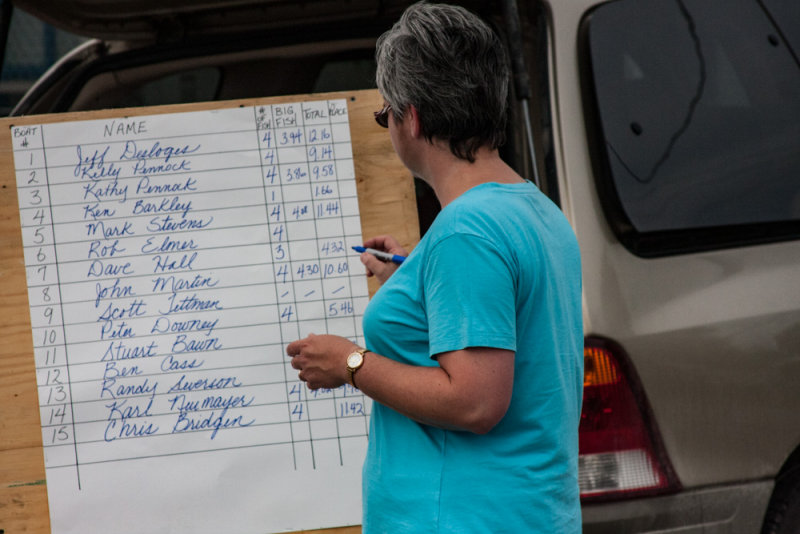 BOAT # NAME # OF FISH BIG FISH TOTAL PLACE
1 Jeff Desloges 4 3.94 12.16
2 Kelly Pennock 4 9.14
3 Kathy Pennock 4 3.86 9.58
4 Ken Barkley 1 1.66
5 Mark Stevens 4 11.44
6 Rob Elmer 4
7 Dave Hall 3 4.32
8 John Martin 4 4.30 10.60
9 Scott Tettman - - -
10 Peter Downey 4 5.46
11 Stuart Bawn
12 Ben Cass
13 Randy Severson
14 Karl Neumayer 4
15 Chris Bridgen 4 11.42